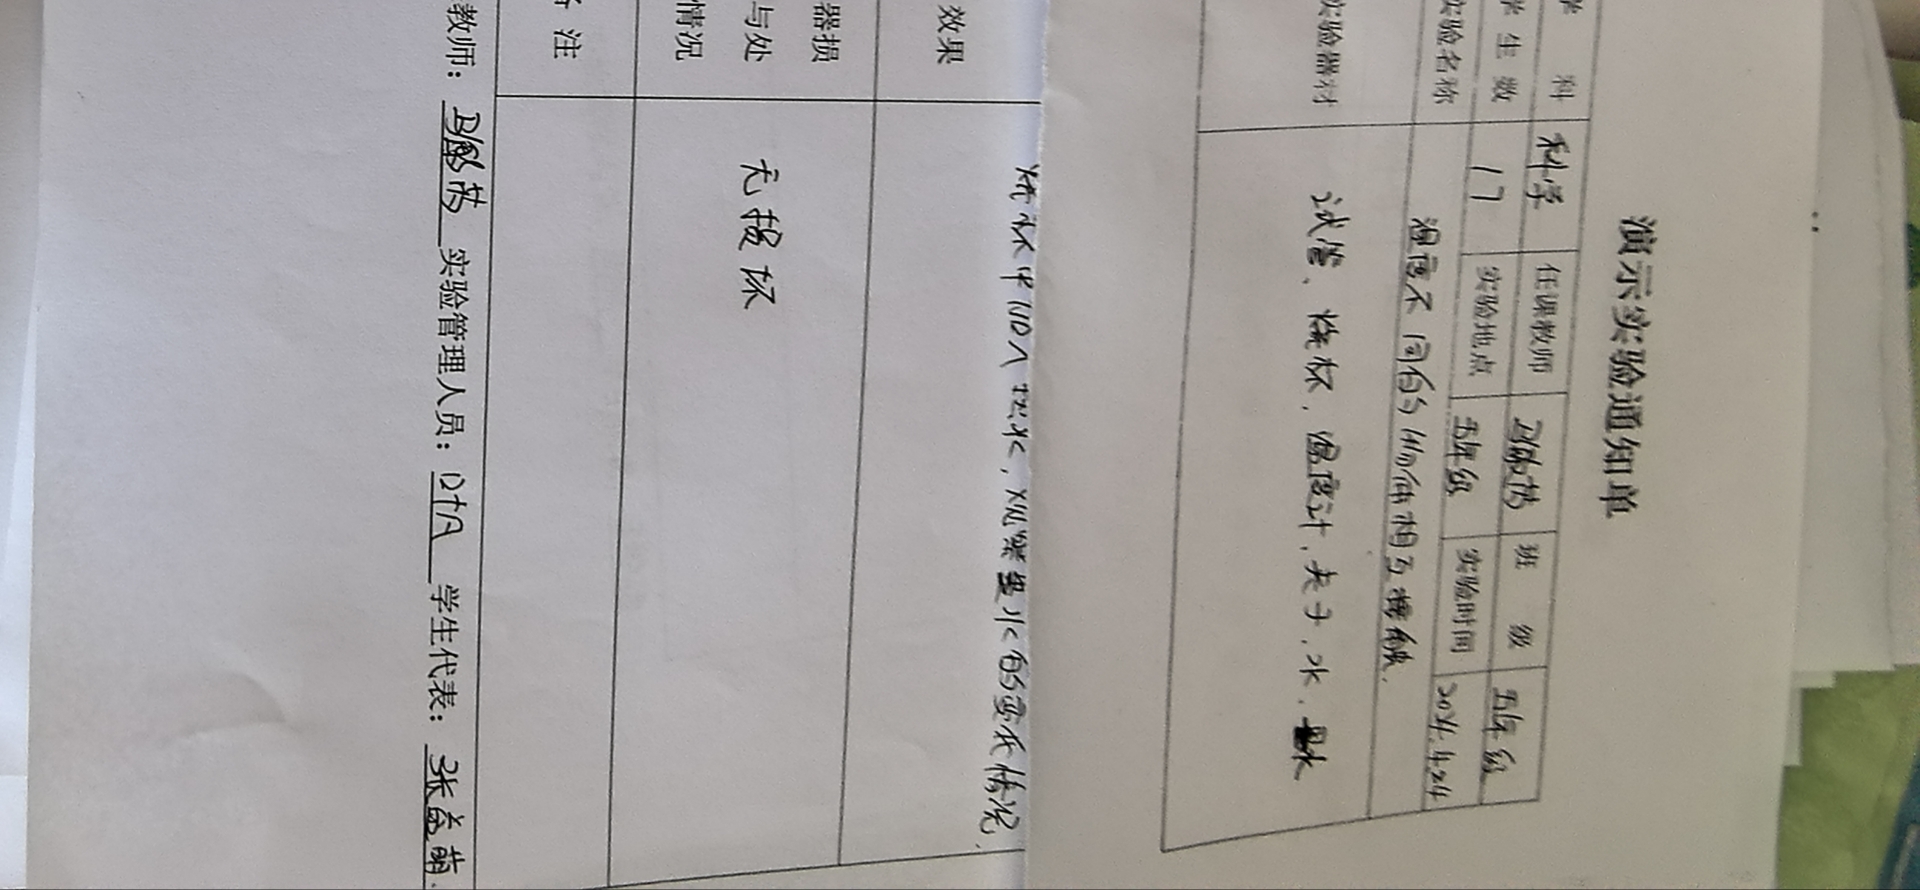 演示实验通知单
学 科 科学 任课教师 班 级 五年级
学生数 17 实验地点 五年级 实验时间
实验名称 温度不同的物体相互接触.
实验器材 试管、烧杯、温度计、夹子、水、
效果 烧杯中加入热水,观察里水的变化情况.
器损
与处 无损坏
情况
备 注
教师: 实验管理人员: 学生代表: 张益萌.